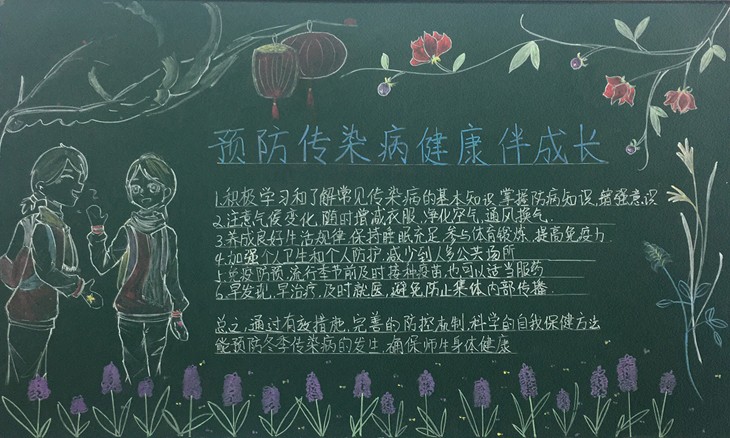 预防传染病健康伴成长
1.积极学习和了解常见传染病的基本知识,掌握防病知识,增强意识
2.注意气候变化,随时增减衣服,净化空气,通风换气.
3.养成良好生活规律,保持睡眠充足,参与体育锻炼,提高免疫力
4.加强个人卫生和个人防护,减少到人多公共场所
5.免疫防预,流行季节前及时接种疫苗,也可以适当服药
6.早发现,早治疗,及时就医,避免防止集体内部传播.
总之,通过有效措施,完善的防控机制,科学的自我保健方法
能预防冬季传染病的发生,确保师生身体健康